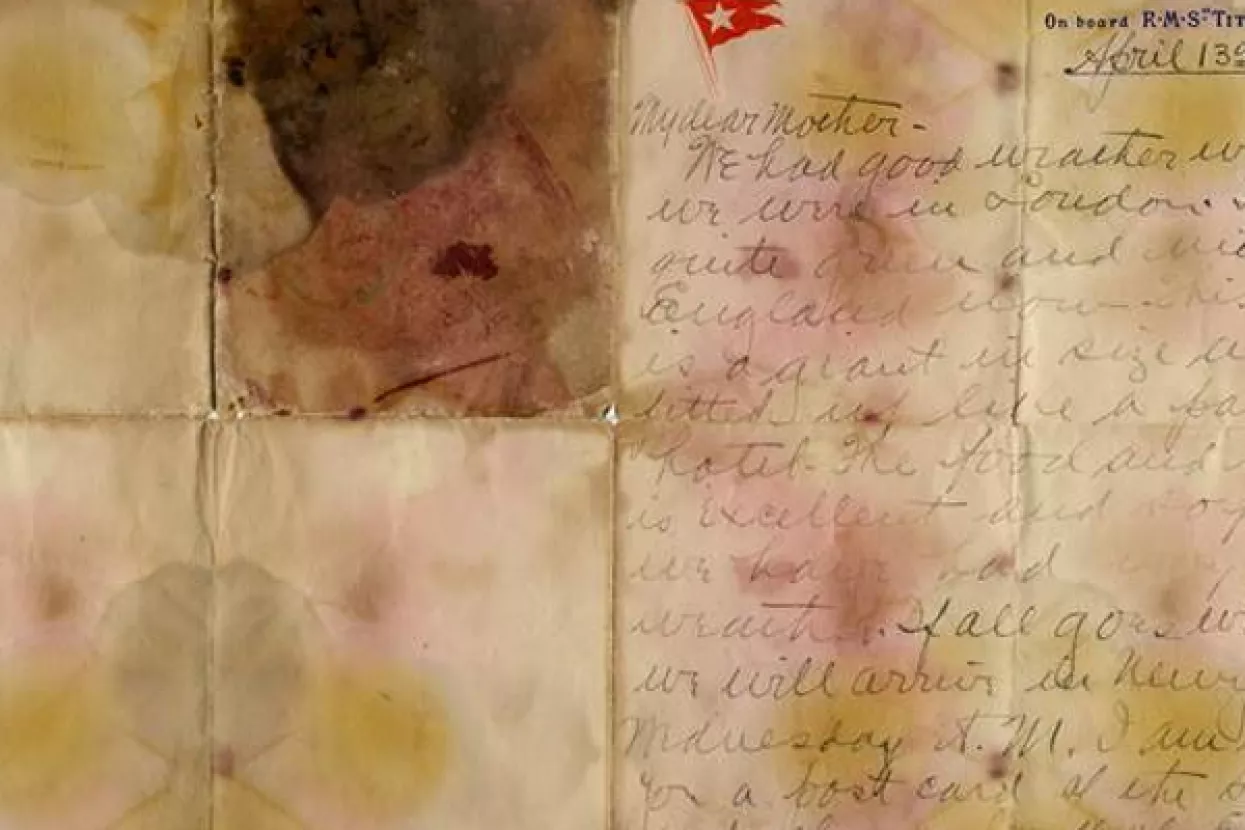 On board R·M·S "TIT
April 13
My dear Mother -
We had good weather w
we were in London.
quite green and
England now - This
is a giant in size
fitted up like a pa
hotel. The food and
is excellent and
we have had
weath. If all goes w
we will arrive in New
Wednesday A. M. I am
you a post card of the